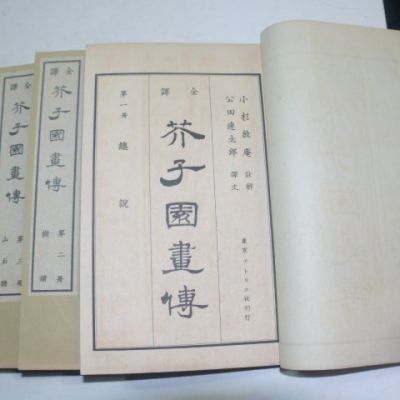 小杉放庵 註解
公田連太郎 譯文
東京 アトリヱ社刊行
全譯
芥子園畫傳
第一册 總說
全譯
芥子園畫傳
第二册
樹譜
全譯
芥子園畫傳
第三册
山石譜